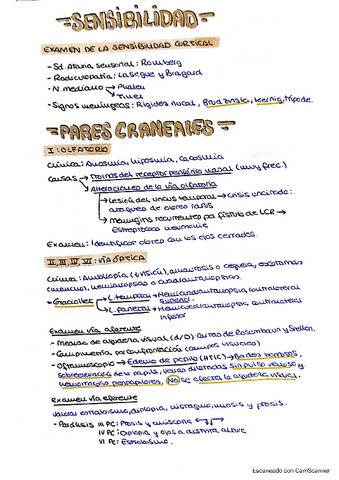 SENSIBILIDAD
EXAMEN DE LA SENSIBILIDAD CORTICAL
- Sd. Ataxia sensorial: Romberg
- Radiculopatía: Lasègue y Bragard
- N. mediano → Phalen
→ Tinel
- Signos meníngeos: Rigidez nucal, Brudzinski, Kernig, Trípode
PARES CRANEALES
I: OLFATORIO
Clínica: Anosmia, hiposmia, cacosmia
Causas → Trauma del receptor periférico nasal (muy frec.)
→ Alteraciones de la vía olfatoria
→ Lesión del uncus temporal → Crisis uncinada:
ataques de olores raros
→ Meningitis recurrentes por fístula de LCR →
Estreptococo neumoniae
Examen: Identificar olores con los ojos cerrados.
II, III, IV, VI: VÍA ÓPTICA
Clínica: Ambliopía (↓ visión), amaurosis o ceguera, escotomas
(mancha), hemianopsias o cuadrantanopsias.
L. temporal → Hemicuadrantanopsia contralateral
superior
L. parietal → Hemicuadrantanopsia contralateral
inferior
Examen vía aferente
- Medida de agudeza visual (d/) Cartas de Rosembaum y Snellen.
- Campimetría por confrontación (campos visuales)
- Oftalmoscopio → Edema de papila (HTIC) → Bordes borrosos,
sobreelevación de la papila, venas dilatadas sin pulso venoso y
hemorragias peripapilares, No se afecta la agudeza visual.
Examen vía eferente
Valorar estrabismo, diplopia, nistagmo, miosis y ptosis.
- Parálisis III PC: Ptosis y
IV PC: Diplopia y ojos a distinta altura
VI PC: Estrabismo.
Escaneado con CamScanner